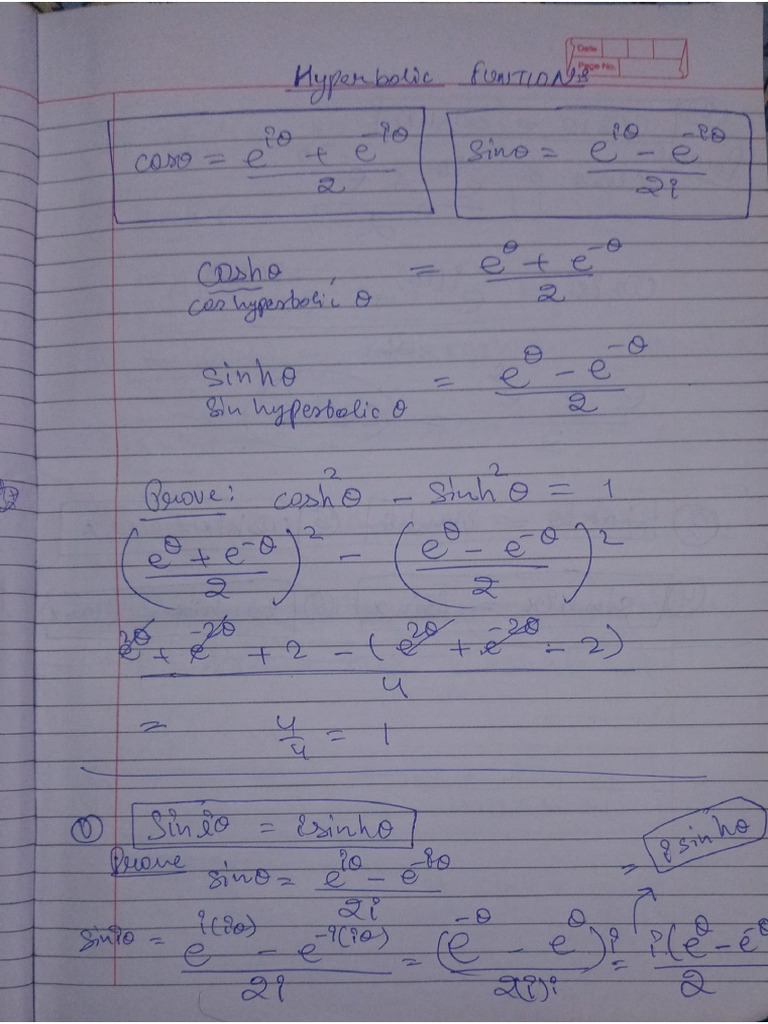 Date
Page No.
Hyperbolic FUNCTIONS
cosθ = (e^{iθ} + e^{-iθ})/2    sinθ = (e^{iθ} - e^{-iθ})/2i
coshθ = (e^θ + e^{-θ})/2
cos hyperbolic θ
sinhθ = (e^θ - e^{-θ})/2
Sin hyperbolic θ
Prove: cosh²θ - sinh²θ = 1
((e^θ + e^{-θ})/2)² - ((e^θ - e^{-θ})/2)²
(e^{2θ} + e^{-2θ} + 2 - (e^{2θ} + e^{-2θ} - 2))/4
= 4/4 = 1
① Siniθ = isinhθ
Prove sinθ = (e^{iθ} - e^{-iθ})/2i
= isinhθ
siniθ = (e^{i(iθ)} - e^{-i(iθ)})/2i = (e^{-θ} - e^θ)i/2(i)i = i(e^θ - e^{-θ})/2